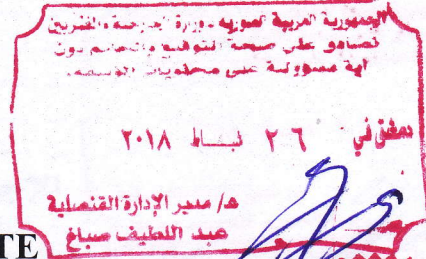 الجمهورية العربية السورية - وزارة الخارجية والمغتربين
نصادق على صحة التوقيع والخاتم دون
أية مسؤولية على محتويات الوثيقة.
دمشق في ٢٦ شباط ٢٠١٨
ه/ مدير الإدارة القنصلية
عبد اللطيف صباغ
TE